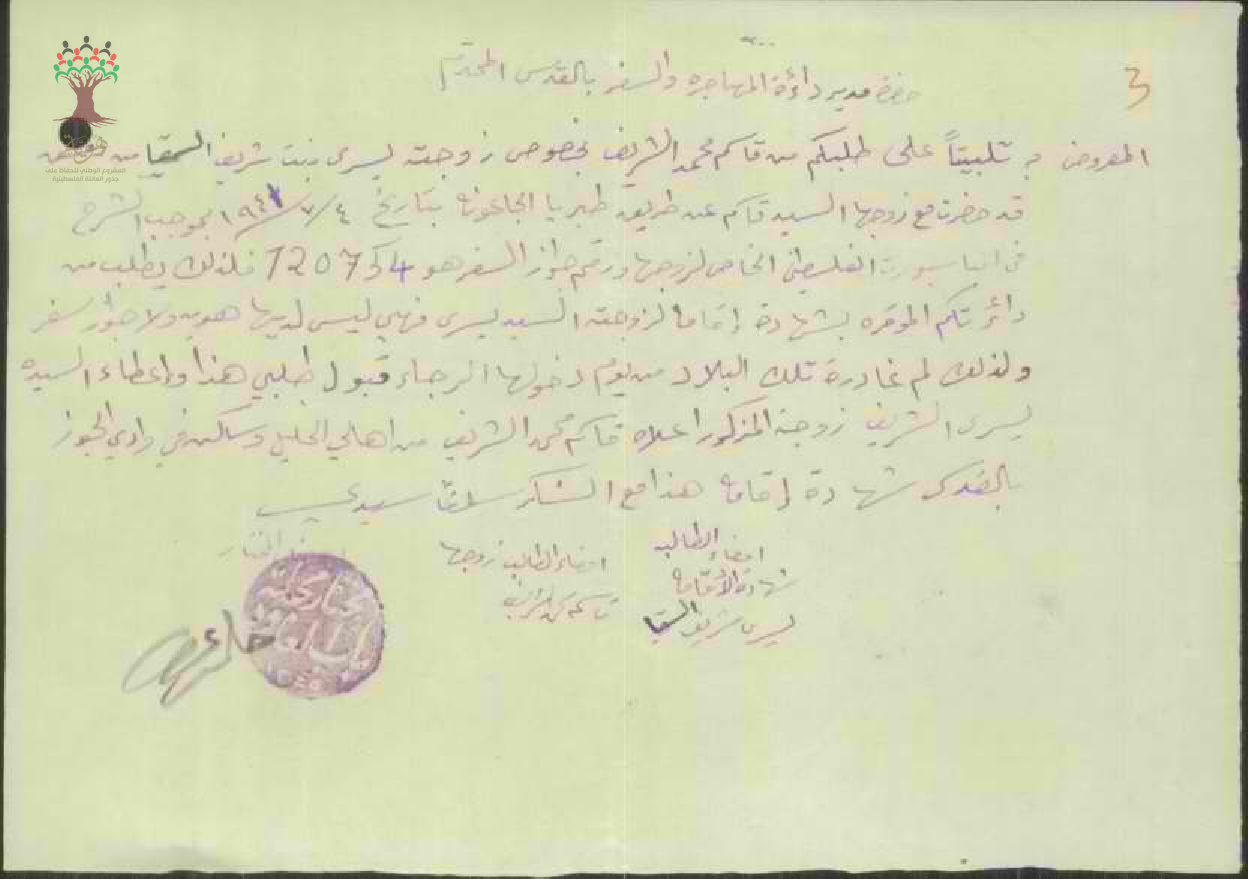 3
حضرة مدير دائرة المهاجره والسفر بالقدس المحترم
المعروض به تلبيتاً على طلبكم من قاسم محمد الشريف بخصوص زوجته يسرى بنت شريف السقا من
قد حضرت مع زوجها السيد قاسم عن طريق طبريا الجاعونه بتاريخ ٤/٧/١٩٤١ بموجب الشرح
في الباسبورت الفلسطيني الخاص لزوجها ورقم جواز السفر هو 120734 فلذلك يطلب من
دائرتكم الموقره بشهادة إقاما لزوجته السيده يسرى فهي ليس لديها هويه ولا جواز سفر
ولذلك لم غادرة تلك البلاد من يوم دخولها الرجاء قبول طلبي هذا واعطاء السيده
يسرى الشريف زوجة المذكور اعلاه قاسم محمد الشريف من اهالي الخليل وساكن في وادي الجوز
بالقدس شهادة إقامه هذا مع الشكر سلفاً سيدي
امضاء الطالبه
شهادة الأقامه
يسرى شريف السقا
امضاء الطالب زوجها
قاسم محمد الشريف
المختار
المشروع الوطني للحفاظ على
جذور العائلة الفلسطينية